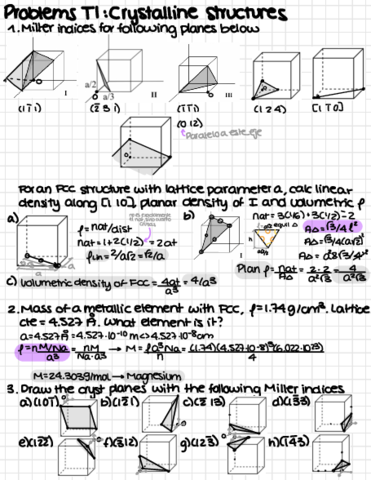 Problems T1: Crystalline Structures
1. Miller indices for following planes below
a/2
a/3
I
II
III
(1 1̄ 1)
(2̄ 3 1)
(1̄ 1̄ 1)
(1 2 4)
[1 1̄ 0]
(0 1 2)
Paralelo a este eje
For an FCC structure with lattice parameter a, calc linear
density along [1 1 0], planar density of I and volumetric ρ
a)
ρ = nat/dist
nat = 1+2(1/2) = 2at
ρlin = 2/a√2 = √2/a
b)
nat = 3(1/6)+3(1/2) = 2
AΔ = √3/4 l²
AΔ = √3/4(a√2)²
Plan ρ = nat/AΔ = 2·2/a²√3 = 4/a²√3
c) Volumetric density of FCC = 4at/a³ = 4/a³
2. Mass of a metallic element with FCC, ρ=1.74g/cm³. Lattice
cte = 4.527 Å. What element is it?
a=4.527Å=4.527·10⁻¹⁰ m <> 4.527·10⁻⁸cm
ρ = nM/Na/a³ = nM/Na·a³ → M = ρa³Na/n = (1.74)(4.527·10⁻⁸)³(6.022·10²³)/4
M=24.3039g/mol → Magnesium
3. Draw the cryst planes with the following Miller indices
a) (1 0 1̄) b) (1 2̄ 1) c) (2̄ 1 3) d) (1 3̄ 3̄)
e) (1 2̄ 2̄) f) (3̄ 1 2) g) (1 2 3̄) h) (1̄ 4̄ 3)